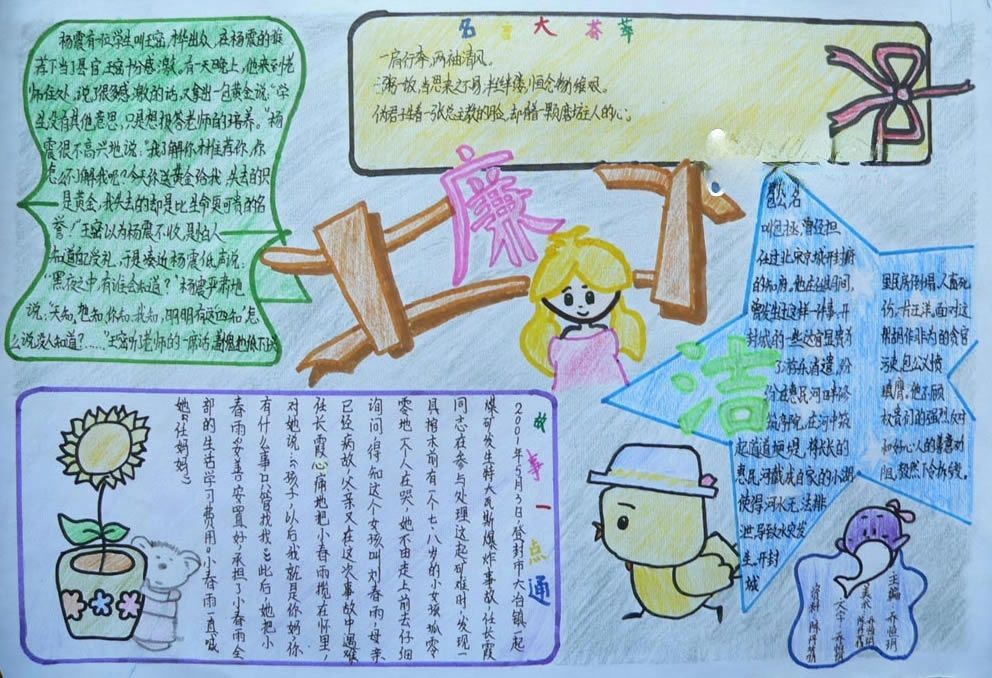 杨震有一位学生叫王密,才华出众,在杨震的推
荐下当了县官,王密十分感激。有一天晚上,他来到老
师住处,说了很多感激的话,又拿出一包黄金说:“学
生没有其他意思,只是想报答老师的培养。”杨
震很不高兴地说:“我了解你才推荐你,你
怎么不了解我呢?今天你送黄金给我,失去的只
是黄金,我失去的却是比生命更可贵的名
誉!”王密以为杨震不收,是怕人
知道他受礼,于是凑近杨震低声说:
“黑夜之中有谁会知道?”杨震严肃地
说:“天知,地知,你知,我知,明明有这四知,怎
说没人知道?……”王密听了老师的一席话,羞愧地低下头
名言大荟萃
一肩行李,两袖清风。
一粥一饭,当思来之不易;半丝半缕,恒念物力维艰。
伪君子生着一张总主教的脸,却有着一颗磨坊主人的心。
廉
洁
包公
叫包拯,曾经担
任过北宋京城开封府
的知府,他在任期间,
曾发生过这样一件事,开
封城的一些达官显贵为
了游乐消遣,纷
纷在惠民河
,在河中筑
起道道堤堰,将长的
惠民河截成自家的小湖
使得河水无法排
泄,导致水灾发
生。开封
城
里民房倒塌,人畜死
伤,一片汪洋。面对这
帮胡作非为的贪官
污吏,包公义愤
填膺。他不顾
权贵们的强烈反对
和好心人的善意劝
阻,毅然下令拆毁。
故事一点通
2001年5月3日,登封市大冶镇一起
煤矿发生特大瓦斯爆炸事故,任长霞
同志在参与处理这起矿难时,发现一
具棺木前有一个七八岁的小女孩孤零
零地一个人在哭,她不由走上前去仔细
询问,得知这个女孩叫刘春雨,母亲
已经病故,父亲又在这次事故中遇难
任长霞心痛地把小春雨揽在怀里,
对她说:“孩子,以后我就是你妈,你
有什么事只管找我”此后,她把小
春雨妥善安置好,承担了小春雨全
部的生活学习费用。小春雨一直喊
她“任妈妈”
主编:乔怡玥
美术:乔怡玥